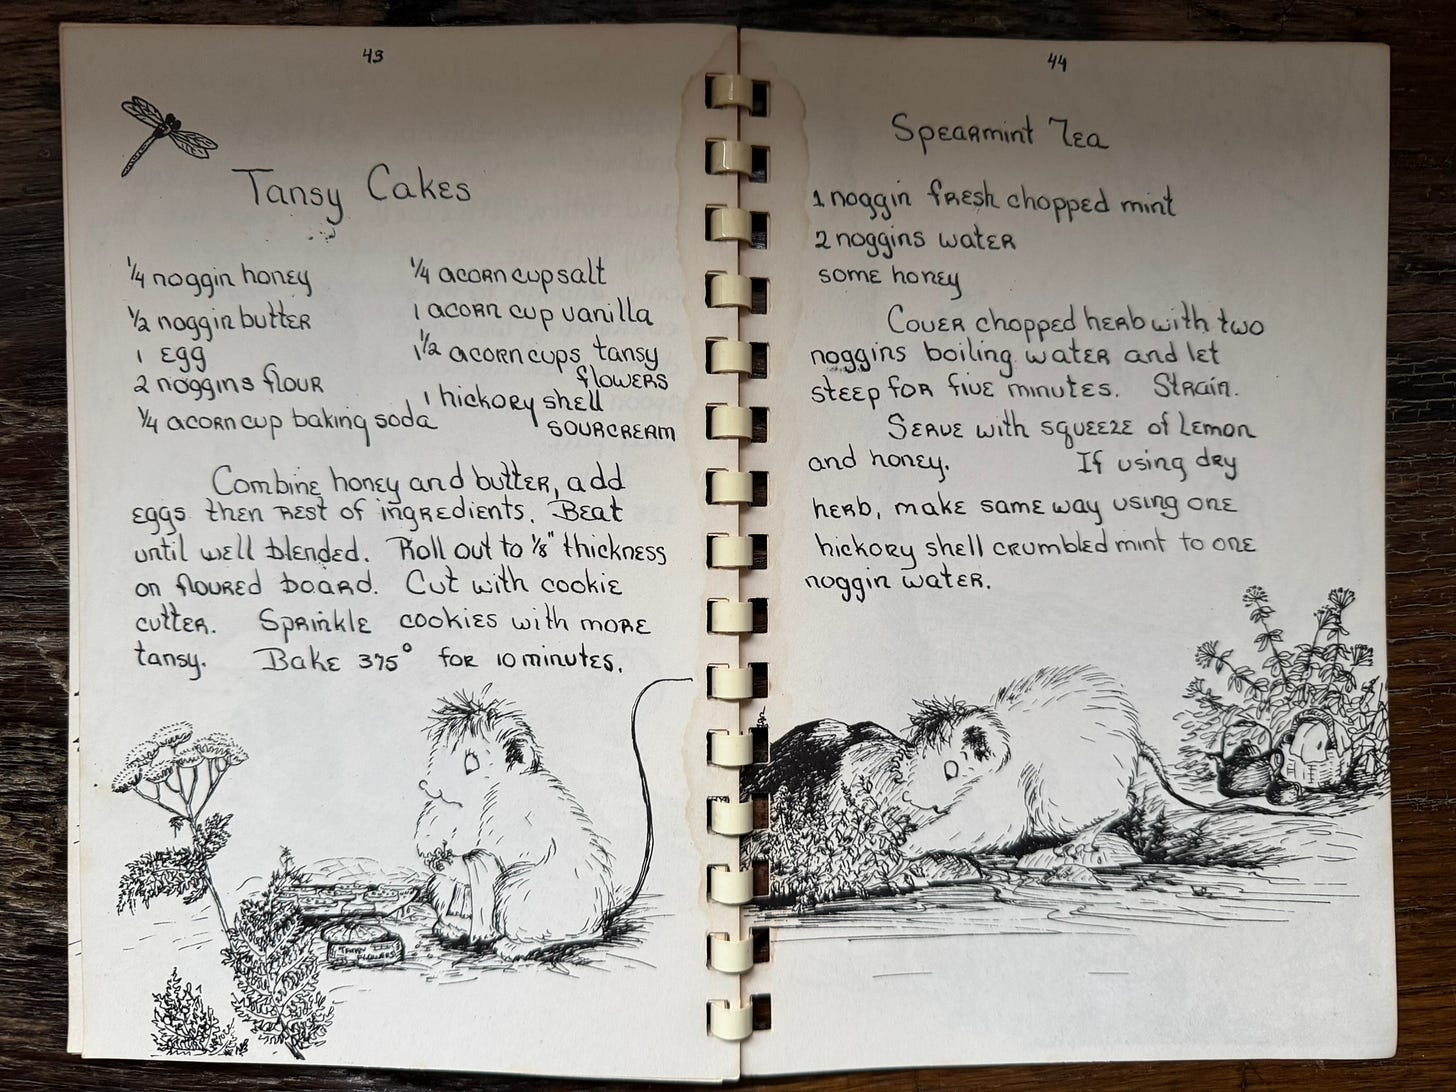 43
Tansy Cakes
1/4 noggin honey
1/2 noggin butter
1 egg
2 noggins flour
1/4 acorn cup baking soda
1/4 acorn cup salt
1 acorn cup vanilla
1 1/2 acorn cups tansy
flowers
1 hickory shell
sourcream
Combine honey and butter, add
eggs then rest of ingredients. Beat
until well blended. Roll out to 1/8" thickness
on floured board. Cut with cookie
cutter. Sprinkle cookies with more
tansy. Bake 375° for 10 minutes.
Tansy
Flowers
44
Spearmint Tea
1 noggin fresh chopped mint
2 noggins water
some honey
Cover chopped herb with two
noggins boiling water and let
steep for five minutes. Strain.
Serve with squeeze of Lemon
and honey. If using dry
herb, make same way using one
hickory shell crumbled mint to one
noggin water.